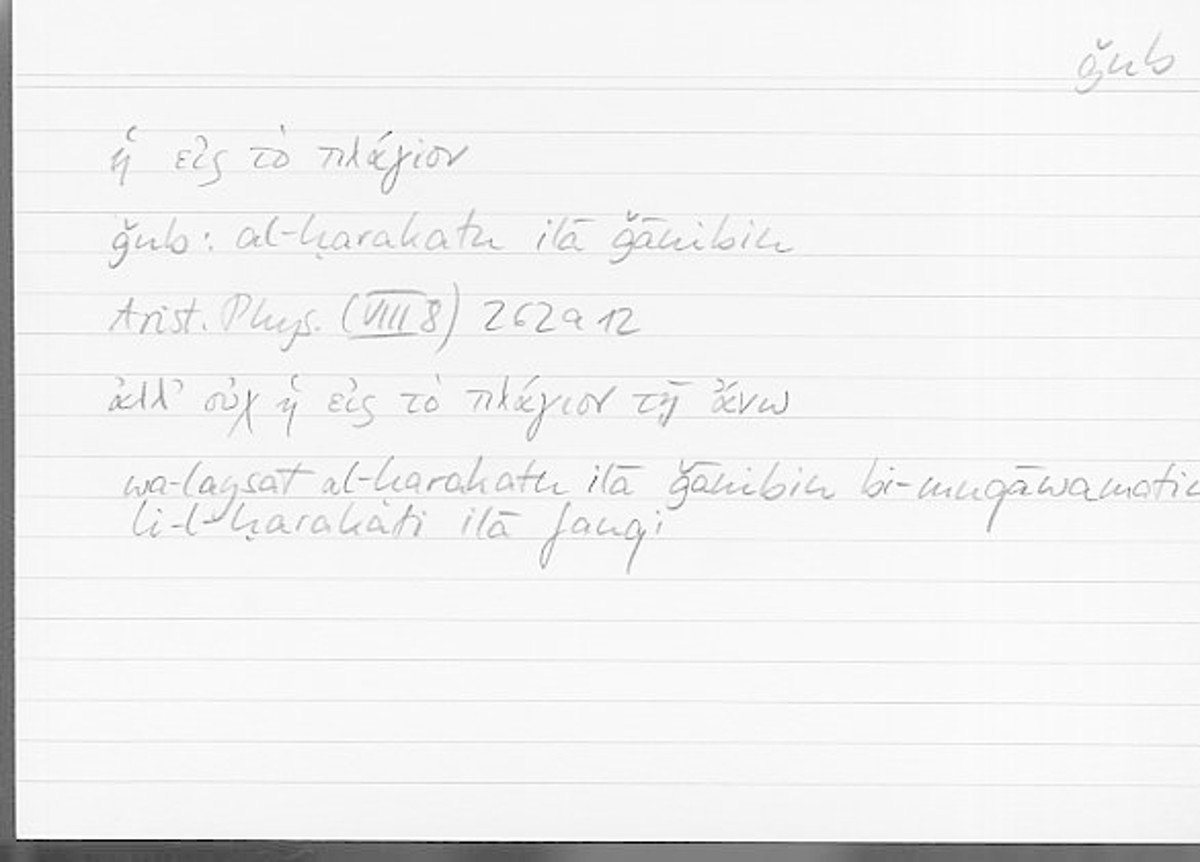 ǧnb
ἡ εἰς τὸ πλάγιον
ǧnb: al-ḥarakatu ilā ǧānibin
Arist. Phys. (VIII 8) 262a12
ἀλλ’ οὐχ ἡ εἰς τὸ πλάγιον τῇ ἄνω
wa-laysat al-ḥarakatu ilā ǧānibin bi-muqāwamatin
li-l-ḥarakati ilā fauqi